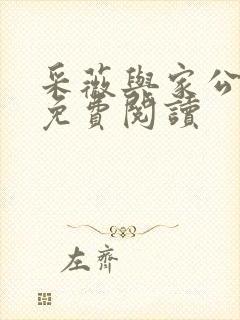 采薇與家公
免費閱讀
左齊